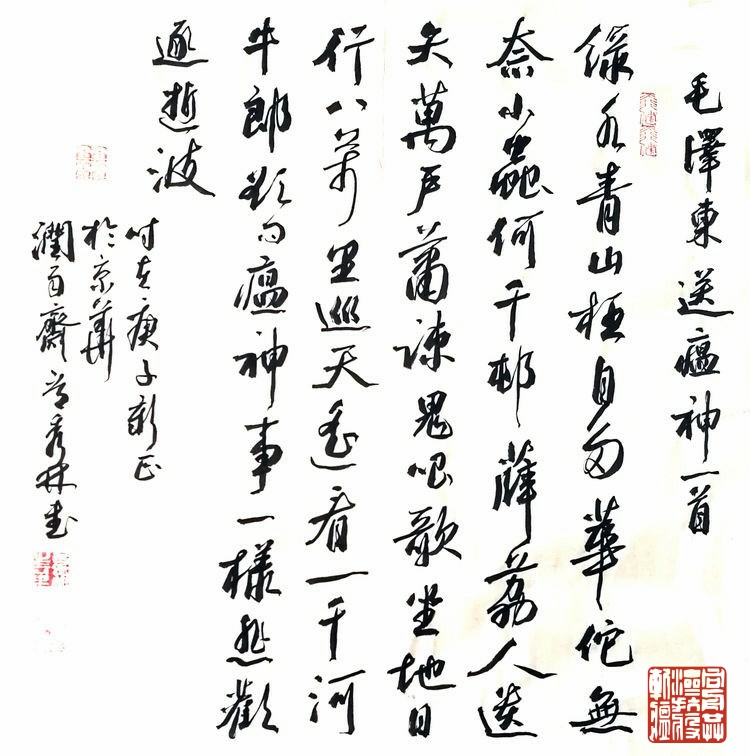 毛澤東送瘟神一首
綠水青山枉自多華佗無
奈小蟲何千邨薜荔人遺
矢萬戶蕭疎鬼唱歌坐地日
行八萬里巡天遙看一千河
牛郎欲問瘟神事一樣悲歡
逐逝波
時在庚子新正
於京華
潤百齋秀林書